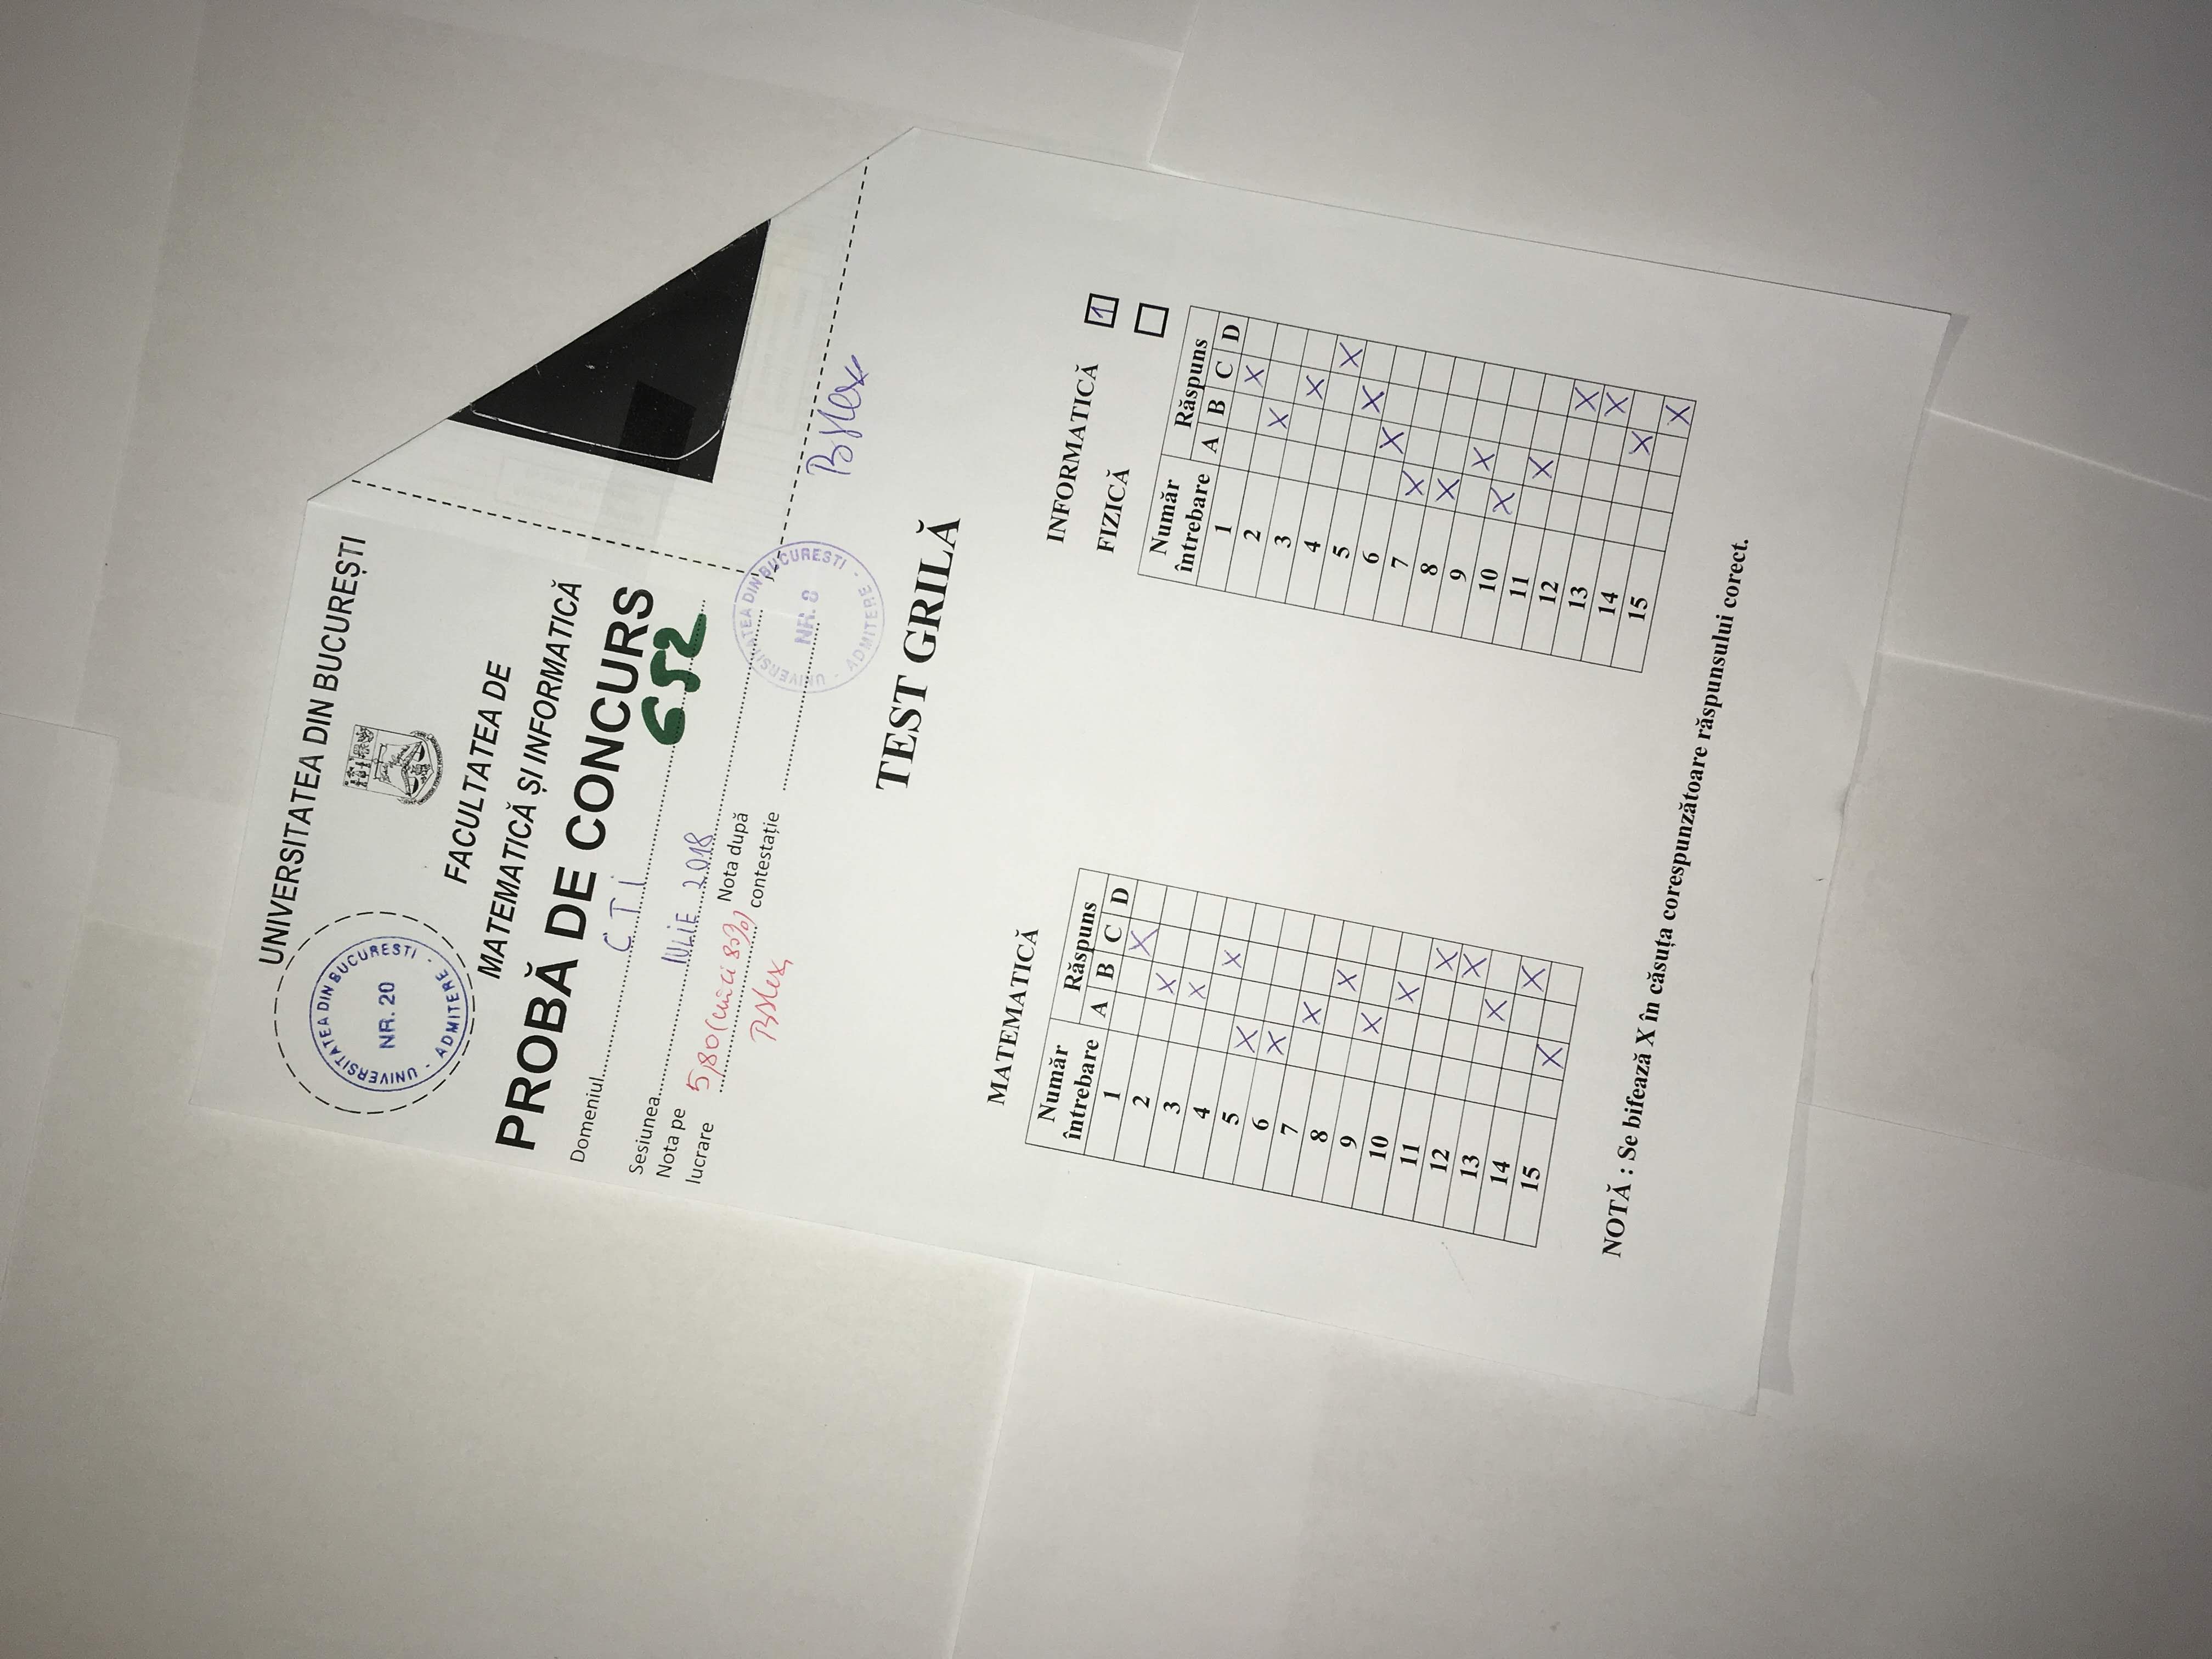 UNIVERSITATEA DIN BUCUREȘTI
UNIVERSITATEA DIN BUCURESTI
NR. 20
- ADMITERE -
FACULTATEA DE
MATEMATICĂ ȘI INFORMATICĂ
PROBĂ DE CONCURS
Domeniul CTI
652
Sesiunea IULIE 2018
Nota pe
lucrare 5,80 (cinci 80%)
Nota după
contestație
UNIVERSITATEA DIN BUCURESTI
NR. 8
- ADMITERE -
TEST GRILĂ
MATEMATICĂ
Număr întrebare Răspuns
A B C D
1 X
2 X
3 X
4 X
5 X
6 X
7 X
8 X
9 X
10 X
11 X
12 X
13 X
14 X
15 X
INFORMATICĂ 1
FIZICĂ
Număr întrebare Răspuns
A B C D
1 X
2 X
3 X
4 X
5 X
6 X
7 X
8 X
9 X
10 X
11 X
12 X
13 X
14 X
15 X
NOTĂ : Se bifează X în căsuța corespunzătoare răspunsului corect.